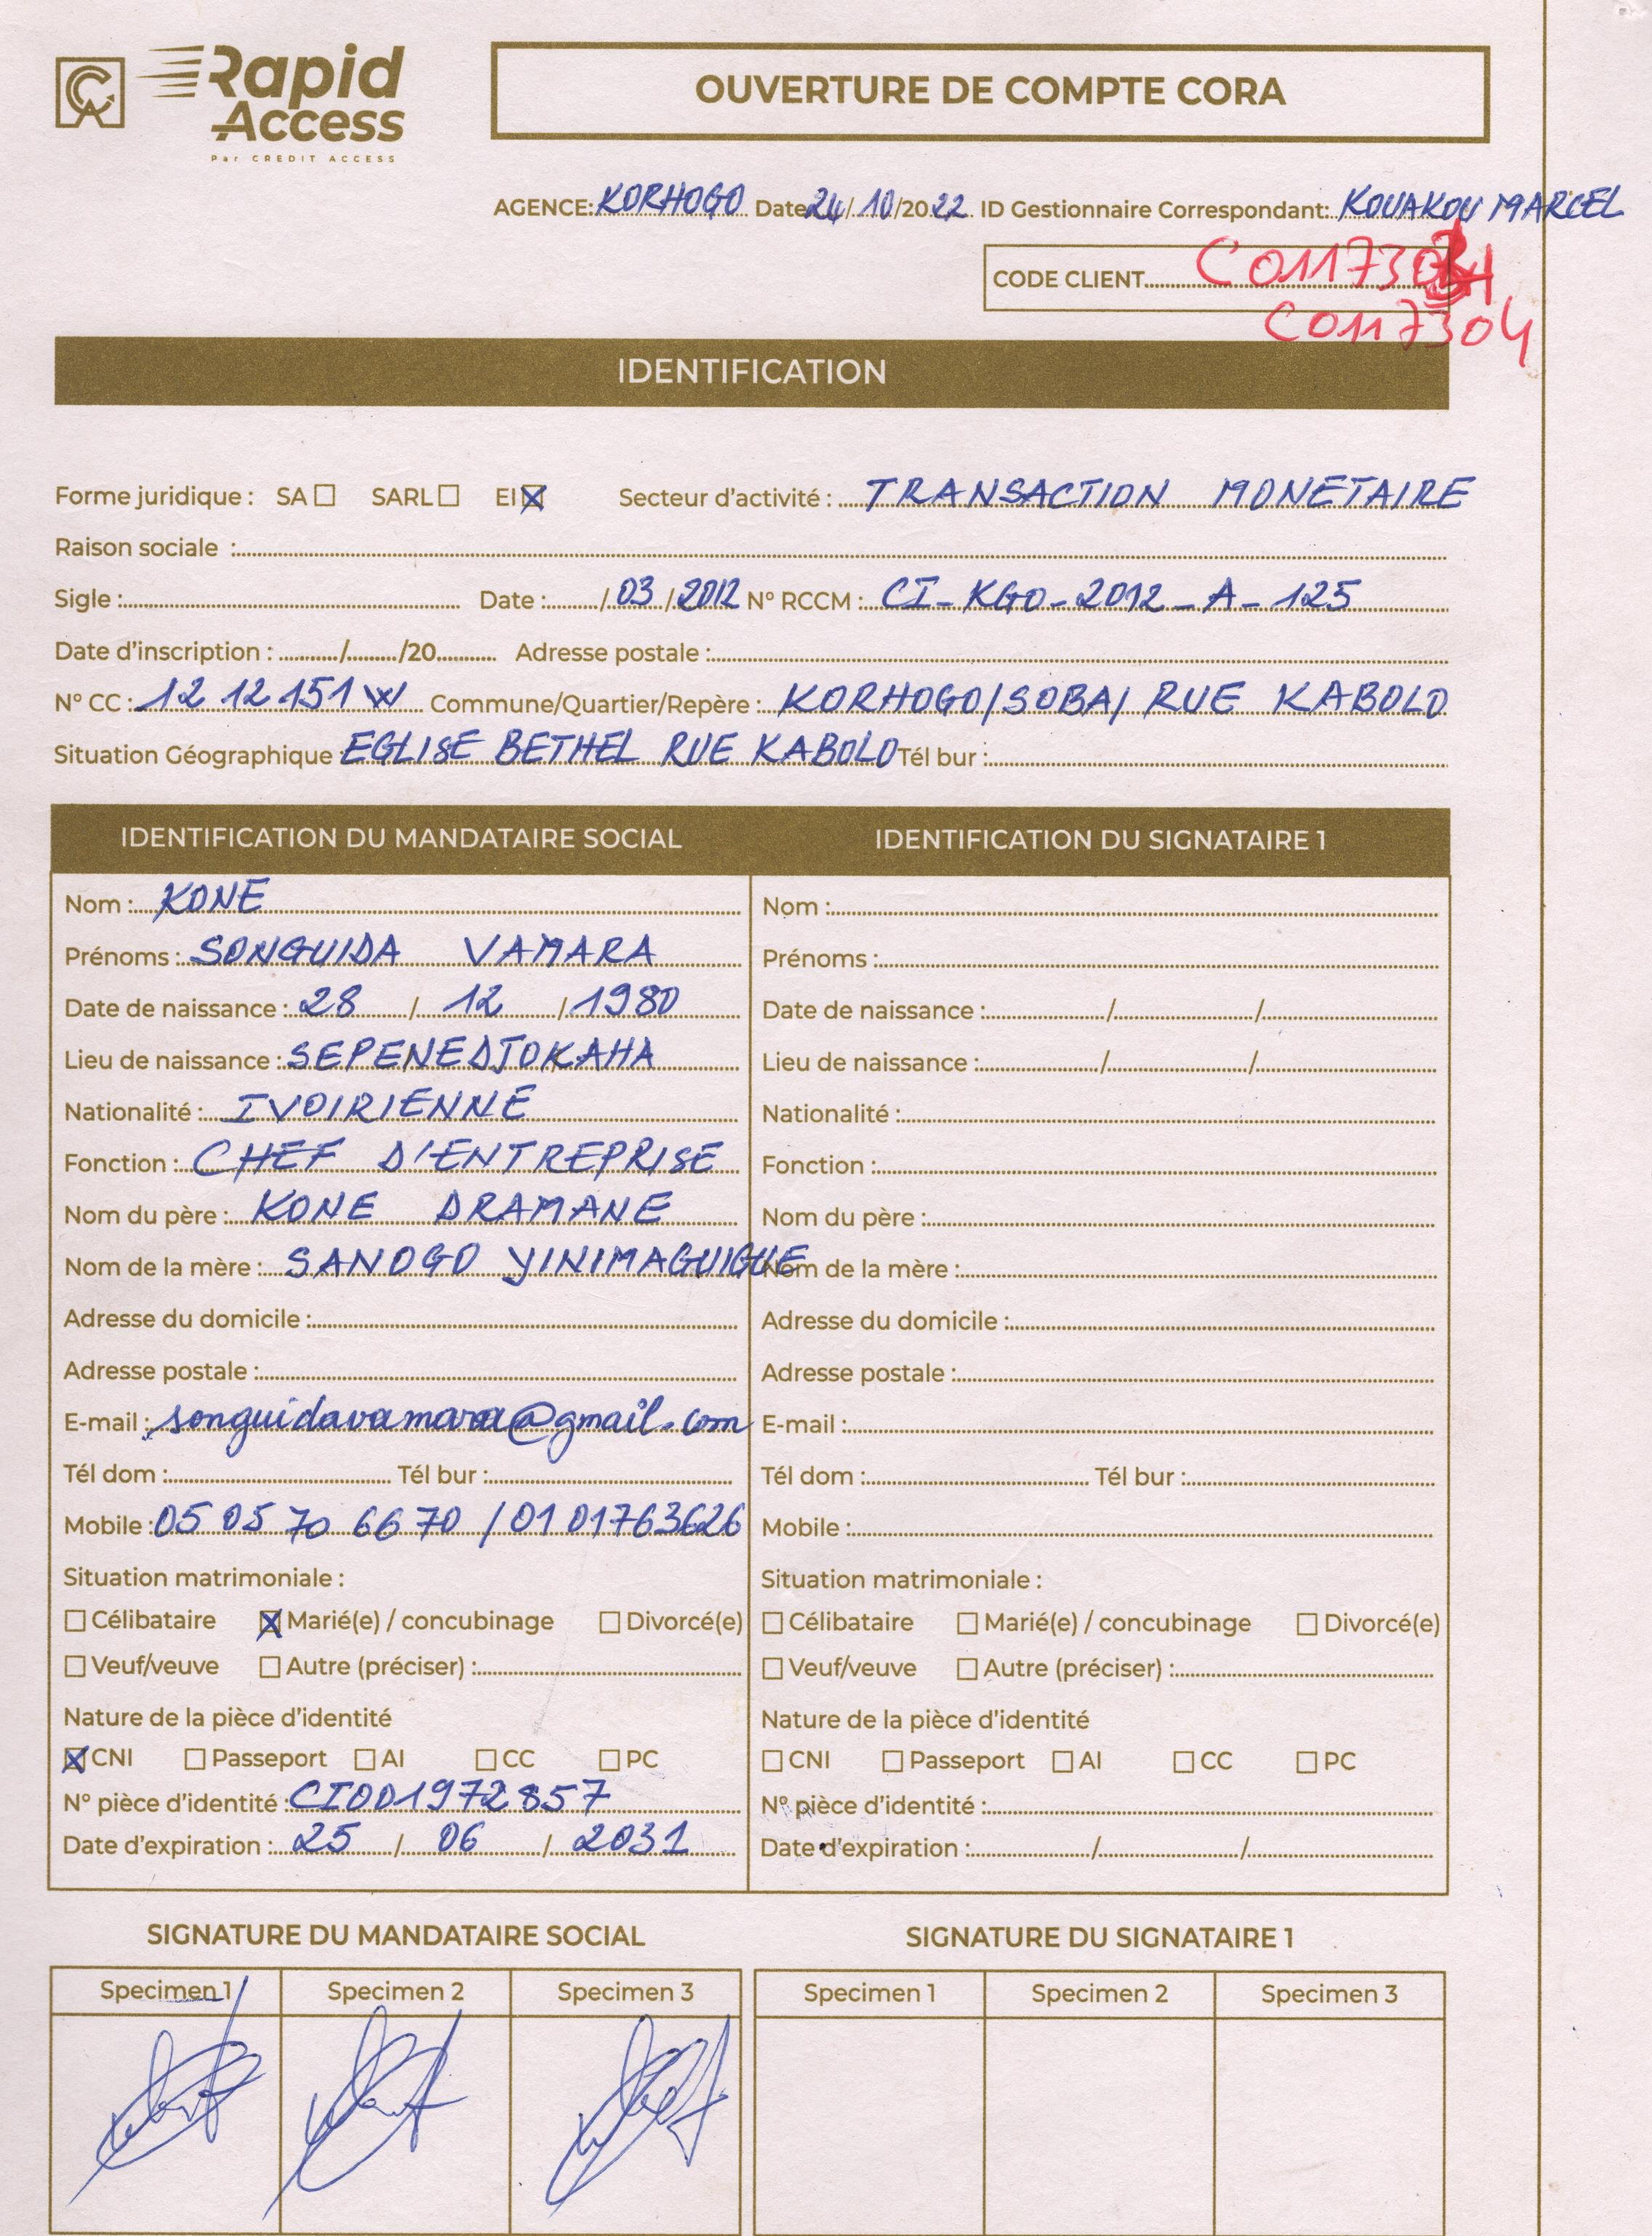 Rapid
Access
Par CREDIT ACCESS
OUVERTURE DE COMPTE CORA
AGENCE: KORHOGO Date 24/10/2022 ID Gestionnaire Correspondant: KOUAKOU MARCEL
CODE CLIENT
C0117304
IDENTIFICATION
Forme juridique : SA ☐ SARL ☐ EI ☒ Secteur d'activité : TRANSACTION MONETAIRE
Raison sociale :
Sigle : Date : / 03 / 2012 N° RCCM : CI-KGO-2012-A-125
Date d'inscription : / /20 Adresse postale :
N° CC : 12 12 151 W Commune/Quartier/Repère : KORHOGO/SOBA/ RUE KABOLO
Situation Géographique EGLISE BETHEL RUE KABOLO Tél bur :
IDENTIFICATION DU MANDATAIRE SOCIAL IDENTIFICATION DU SIGNATAIRE 1
Nom : KONE Nom :
Prénoms : SONGUIDA VAMARA Prénoms :
Date de naissance : 28 / 12 / 1980 Date de naissance : / /
Lieu de naissance : SEPENEDJOKAHA Lieu de naissance : / /
Nationalité : IVOIRIENNE Nationalité :
Fonction : CHEF D'ENTREPRISE Fonction :
Nom du père : KONE DRAMANE Nom du père :
Nom de la mère : SANOGO YINIMAGUIGUE Nom de la mère :
Adresse du domicile : Adresse du domicile :
Adresse postale : Adresse postale :
E-mail : songuidavamara@gmail.com E-mail :
Tél dom : Tél bur : Tél dom : Tél bur :
Mobile : 05 05 70 66 70 / 01 01763626 Mobile :
Situation matrimoniale : Situation matrimoniale :
☐ Célibataire ☒ Marié(e) / concubinage ☐ Divorcé(e) ☐ Célibataire ☐ Marié(e) / concubinage ☐ Divorcé(e)
☐ Veuf/veuve ☐ Autre (préciser) : ☐ Veuf/veuve ☐ Autre (préciser) :
Nature de la pièce d'identité Nature de la pièce d'identité
☒ CNI ☐ Passeport ☐ AI ☐ CC ☐ PC ☐ CNI ☐ Passeport ☐ AI ☐ CC ☐ PC
N° pièce d'identité : CI001972857 N° pièce d'identité :
Date d'expiration : 25 / 06 / 2031 Date d'expiration : / /
SIGNATURE DU MANDATAIRE SOCIAL SIGNATURE DU SIGNATAIRE 1
Specimen 1 Specimen 2 Specimen 3 Specimen 1 Specimen 2 Specimen 3